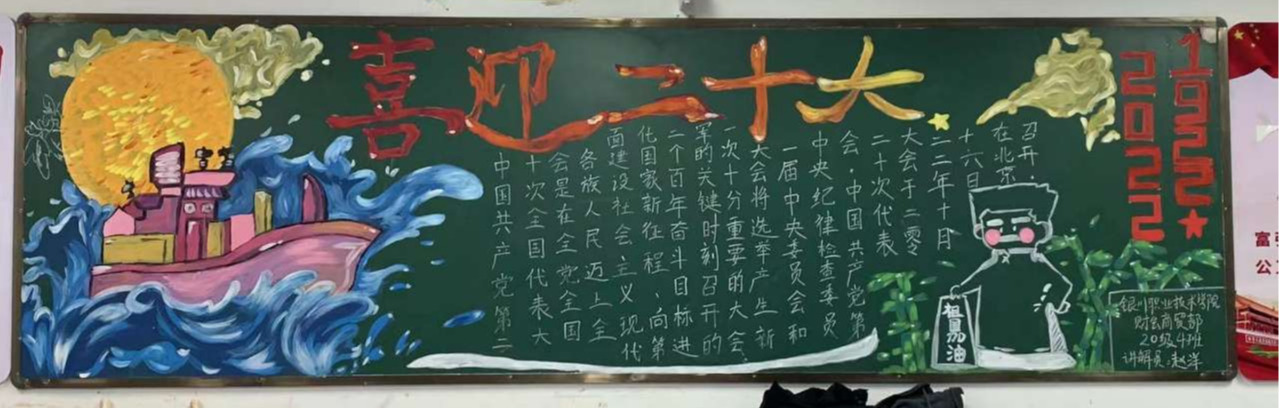 喜迎二十大
1922
2022
中国共产党第二
十次全国代表大
会是在全党全国
各族人民迈上全
面建设社会主义现代
化国家新征程、向第
二个百年奋斗目标进
军的关键时刻召开的
一次十分重要的大会
大会将选举产生新
一届中央委员会和
中央纪律检查委员
会.中国共产党第
二十次代表
大会于二零
二二年十月
十六日
在北京
召开.
加油
银川职业技术学院
财会商贸部
20级4班
讲解员:赵洋
富
公